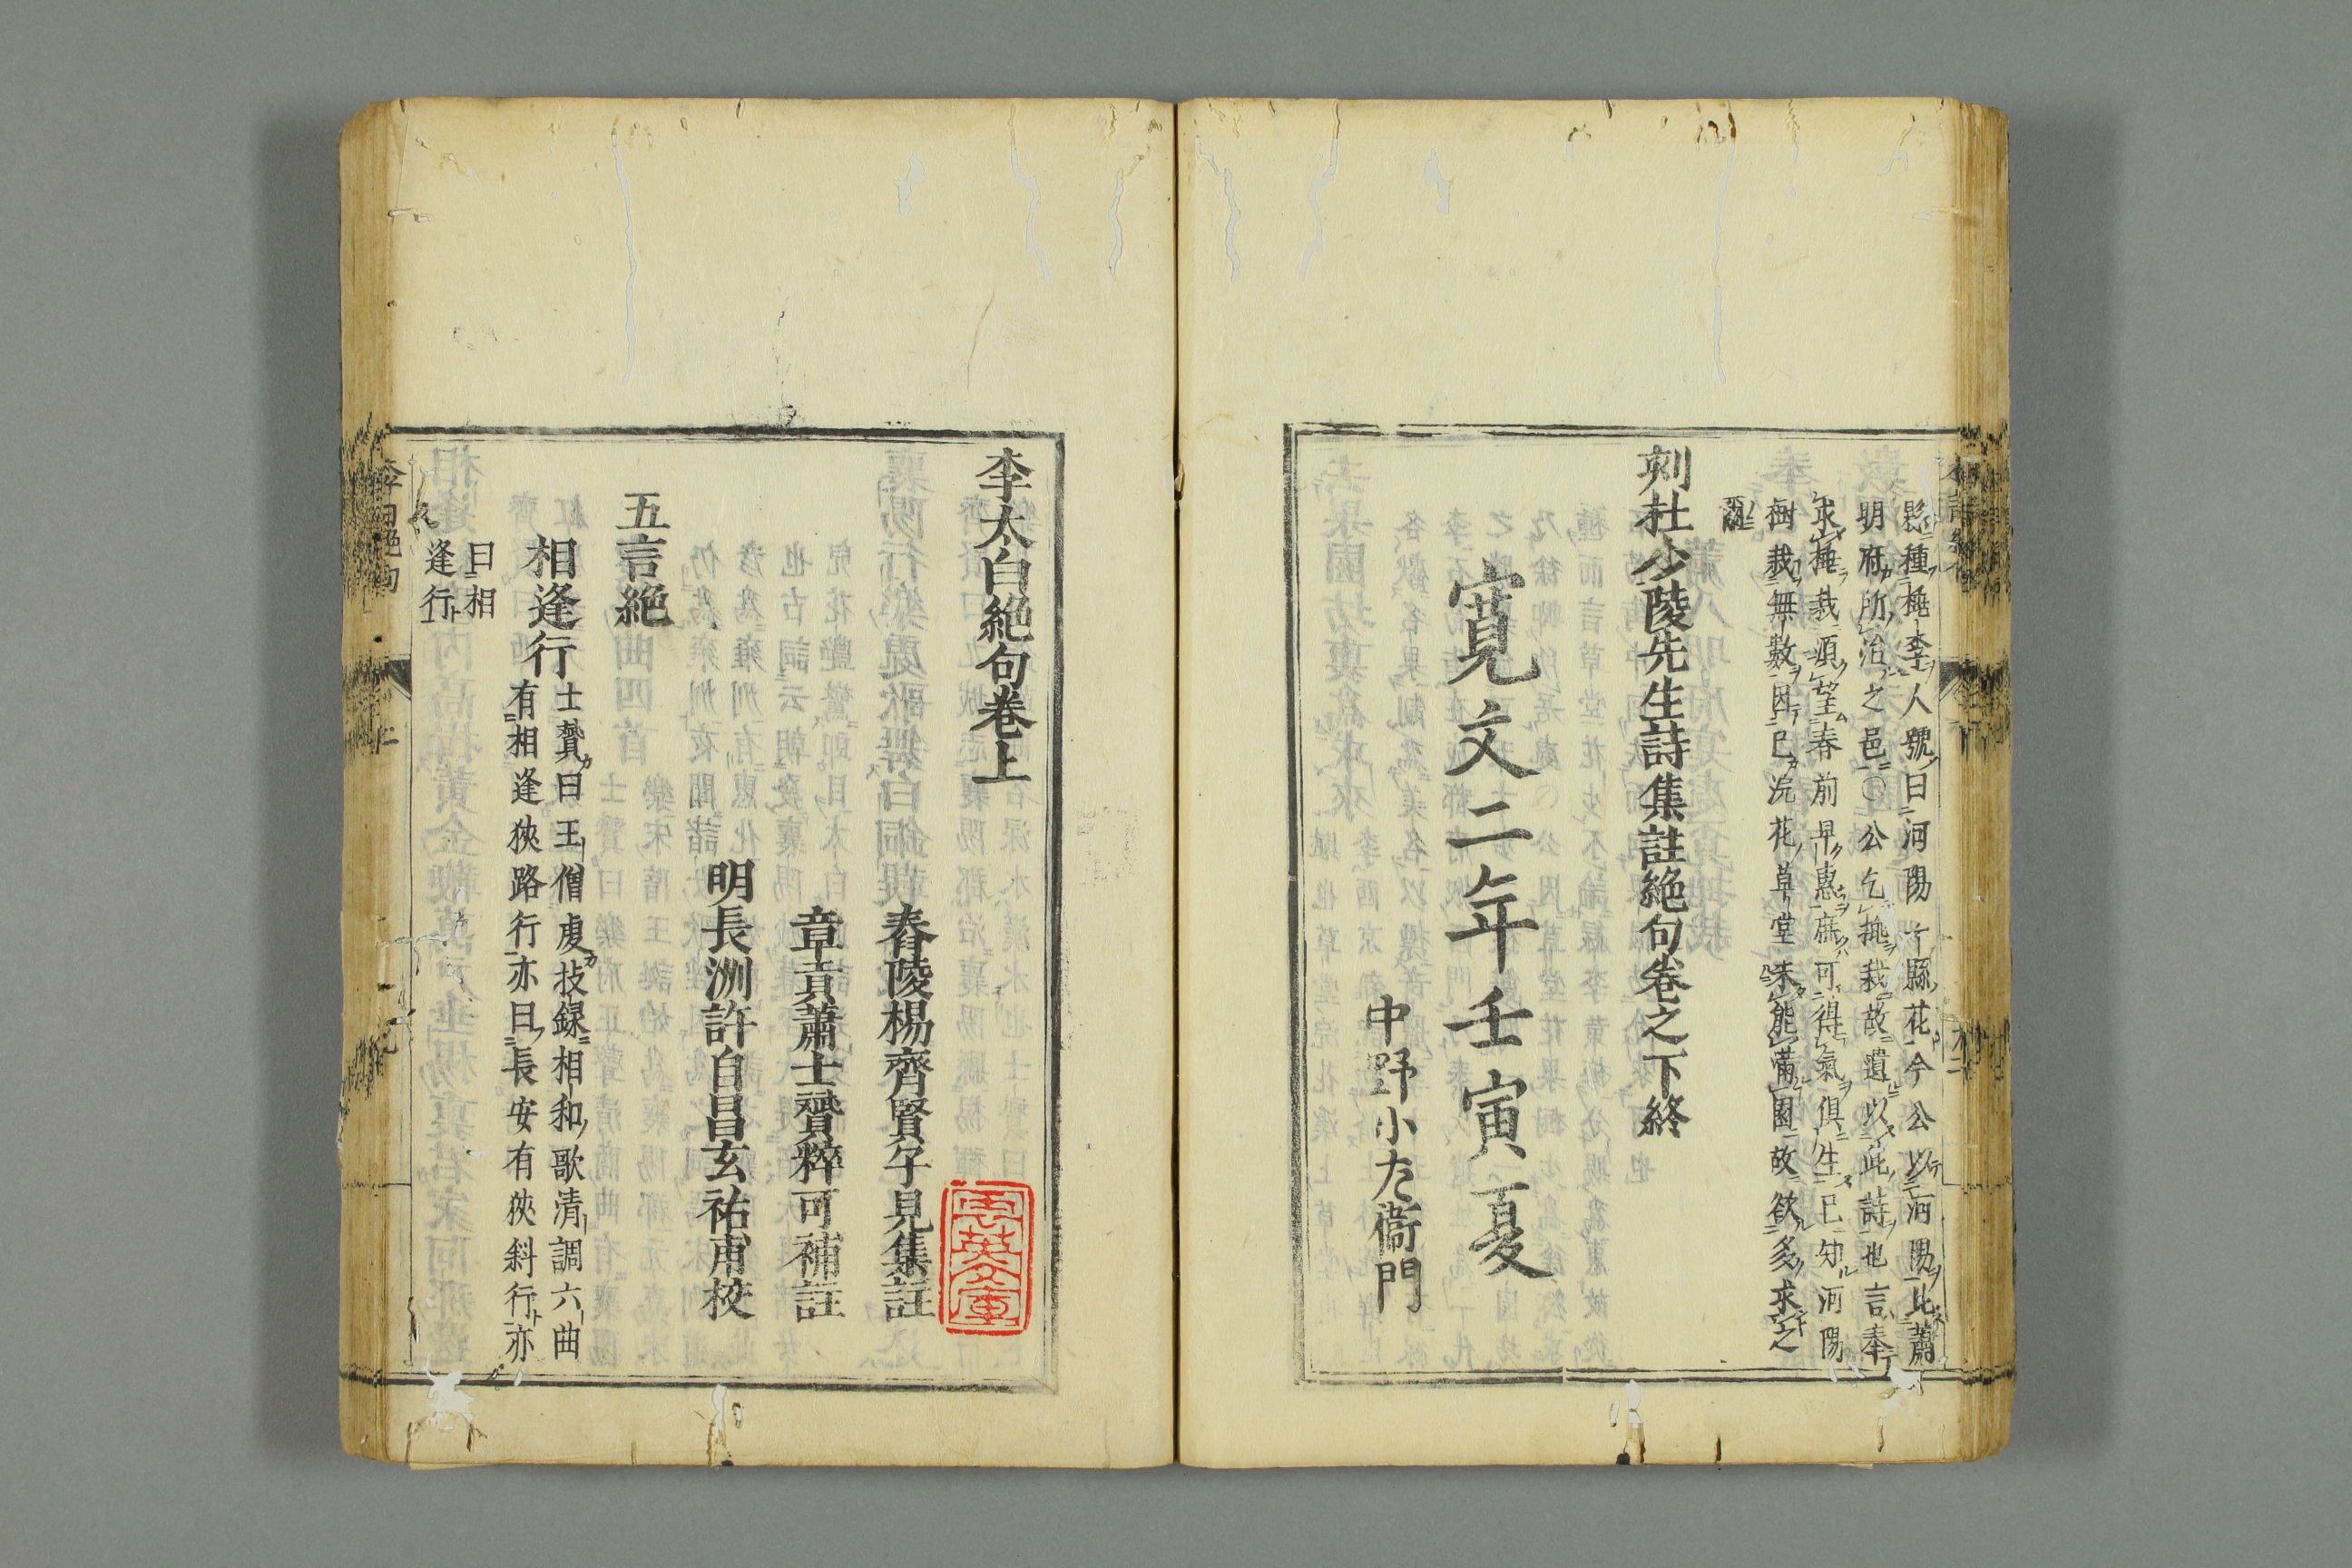 縣種桃李人號曰河陽一縣花今公以河陽比蕭
明府所治之邑〇公乞桃栽故遺以此詩也言奉
求桃栽須望春前早惠庶可得氣俱生已知河陽
樹栽無數因已浣花草堂未能滿園故欲多求之
爾
刻杜少陵先生詩集註絶句卷之下終
寛文二年壬寅夏
中野小左衞門
李太白絶句卷上
春陵楊齊賢子見集註
章貢蕭士贇粹可補註
明長洲許自昌玄祐甫校
五言絶
相逢行
士贇曰王僧虔技録相和歌清調六曲
有相逢狹路行亦曰長安有狹斜行亦
曰相
逢行